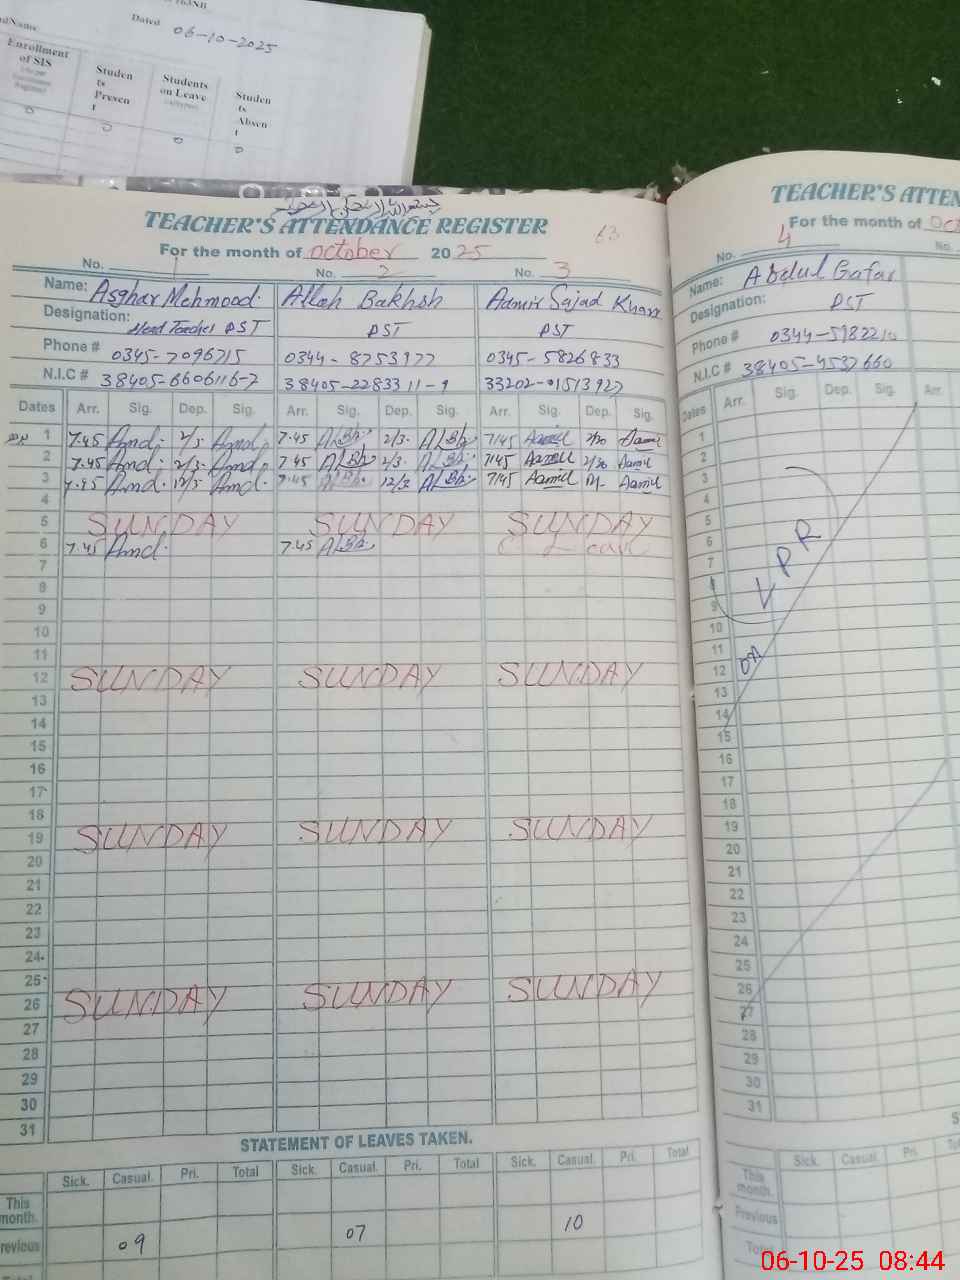 Dated 06-10-2025
Enrollment of SIS
Studen ts Presen t
Students on Leave
Studen ts Absen t
0 0 0 0
بسم اللہ الرحمٰن الرحیم
TEACHER'S ATTENDANCE REGISTER
63
For the month of October 2025
No. 1 No. 2 No. 3
Name: Asghar Mehmood. Allah Bakhsh Aamir Sajad Khan
Designation: Head Teacher PST PST PST
Phone # 0345-7096715 0344-8753977 0345-5826833
N.I.C # 38405-6606116-7 38405-2283311-9 33202-01513927
Dates Arr. Sig. Dep. Sig. Arr. Sig. Dep. Sig. Arr. Sig. Dep. Sig.
1 7.45 Amd. 2/3. Amd. 7.45 ALBh 2/3. ALBh 7/45 Aamil 2/30 Aamil
2 7.45 Amd. 2/3. Amd. 7.45 ALBh 2/3. ALBh 7/45 Aamil 2/30 Aamil
3 7.45 Amd. 12/3. Amd. 7.45 ALBh 12/3 ALBh 7/45 Aamil Aamil
4
5 SUNDAY SUNDAY SUNDAY
6 7.45 Amd. 7.45 ALBh C Leave
7
8
9
10
11
12 SUNDAY SUNDAY SUNDAY
13
14
15
16
17
18
19 SUNDAY SUNDAY SUNDAY
20
21
22
23
24
25
26 SUNDAY SUNDAY SUNDAY
27
28
29
30
31
STATEMENT OF LEAVES TAKEN.
Sick. Casual. Pri. Total Sick. Casual. Pri. Total Sick. Casual. Pri. Total
This month.
Previous 09 07 10
Total
TEACHER'S ATTEN
For the month of Oct
No. 4 No.
Name: Abdul Gafar
Designation: PST
Phone # 0344-5982210
N.I.C # 38405-4537660
Dates Arr. Sig. Dep. Sig. Arr.
1
2
3
4
5
6
7
8
9
10
11
12
13
14
15
16
17
18
19
20
21
22
23
24
25
26
27
28
29
30
31
V P R
Sick. Casual. Pri.
This month.
Previous
Total
06-10-25 08:44